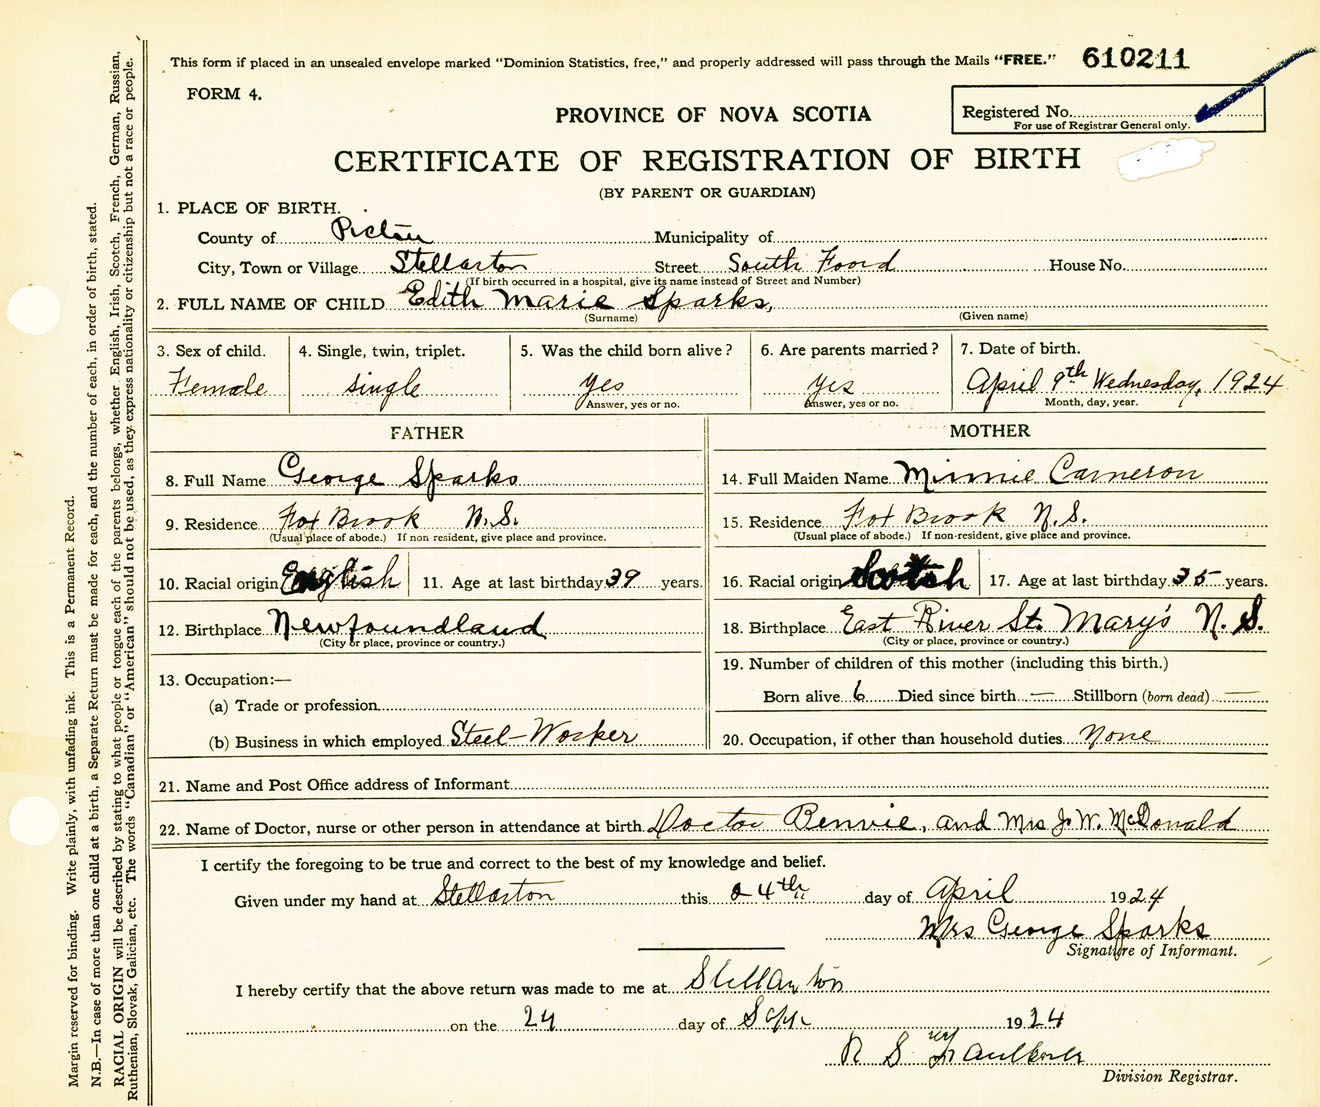 This form if placed in an unsealed envelope marked "Dominion Statistics, free," and properly addressed will pass through the Mails "FREE." 610211
FORM 4.
PROVINCE OF NOVA SCOTIA
Registered No.
For use of Registrar General only.
CERTIFICATE OF REGISTRATION OF BIRTH
(BY PARENT OR GUARDIAN)
1. PLACE OF BIRTH.
County of Pictou Municipality of
City, Town or Village Stellarton Street South Foord House No.
(If birth occurred in a hospital, give its name instead of Street and Number)
2. FULL NAME OF CHILD Edith Marie Sparks,
(Surname) (Given name)
3. Sex of child. 4. Single, twin, triplet. 5. Was the child born alive? 6. Are parents married? 7. Date of birth.
Female single yes yes April 9th Wednesday, 1924
Answer, yes or no. Answer, yes or no. Month, day, year.
FATHER MOTHER
8. Full Name George Sparks 14. Full Maiden Name Minnie Cameron
9. Residence Fox Brook N.S. 15. Residence Fox Brook N.S.
(Usual place of abode.) If non-resident, give place and province. (Usual place of abode.) If non-resident, give place and province.
10. Racial origin English 11. Age at last birthday 39 years. 16. Racial origin Scotch 17. Age at last birthday 35 years.
12. Birthplace Newfoundland 18. Birthplace East River St. Mary's N.S.
(City or place, province or country.) (City or place, province or country.)
13. Occupation:— 19. Number of children of this mother (including this birth.)
(a) Trade or profession Born alive 6 Died since birth — Stillborn (born dead) —
(b) Business in which employed Steel-Worker 20. Occupation, if other than household duties None
21. Name and Post Office address of Informant
22. Name of Doctor, nurse or other person in attendance at birth Doctor Benvie, and Mrs J. W. McDonald
I certify the foregoing to be true and correct to the best of my knowledge and belief.
Given under my hand at Stellarton this 24th day of April 1924
Mrs George Sparks
Signature of Informant.
I hereby certify that the above return was made to me at Stellarton
on the 24 day of Sept 1924
Division Registrar.
Margin reserved for binding. Write plainly, with unfading ink. This is a Permanent Record.
N.B.—In case of more than one child at a birth, a Separate Return must be made for each, and the number of each, in order of birth, stated.
RACIAL ORIGIN will be described by stating to what people or tongue each of the parents belongs, whether English, Irish, Scotch, French, German, Russian,
Ruthenian, Slovak, Galician, etc. The words "Canadian" or "American" should not be used, as they express nationality or citizenship but not a race or people.